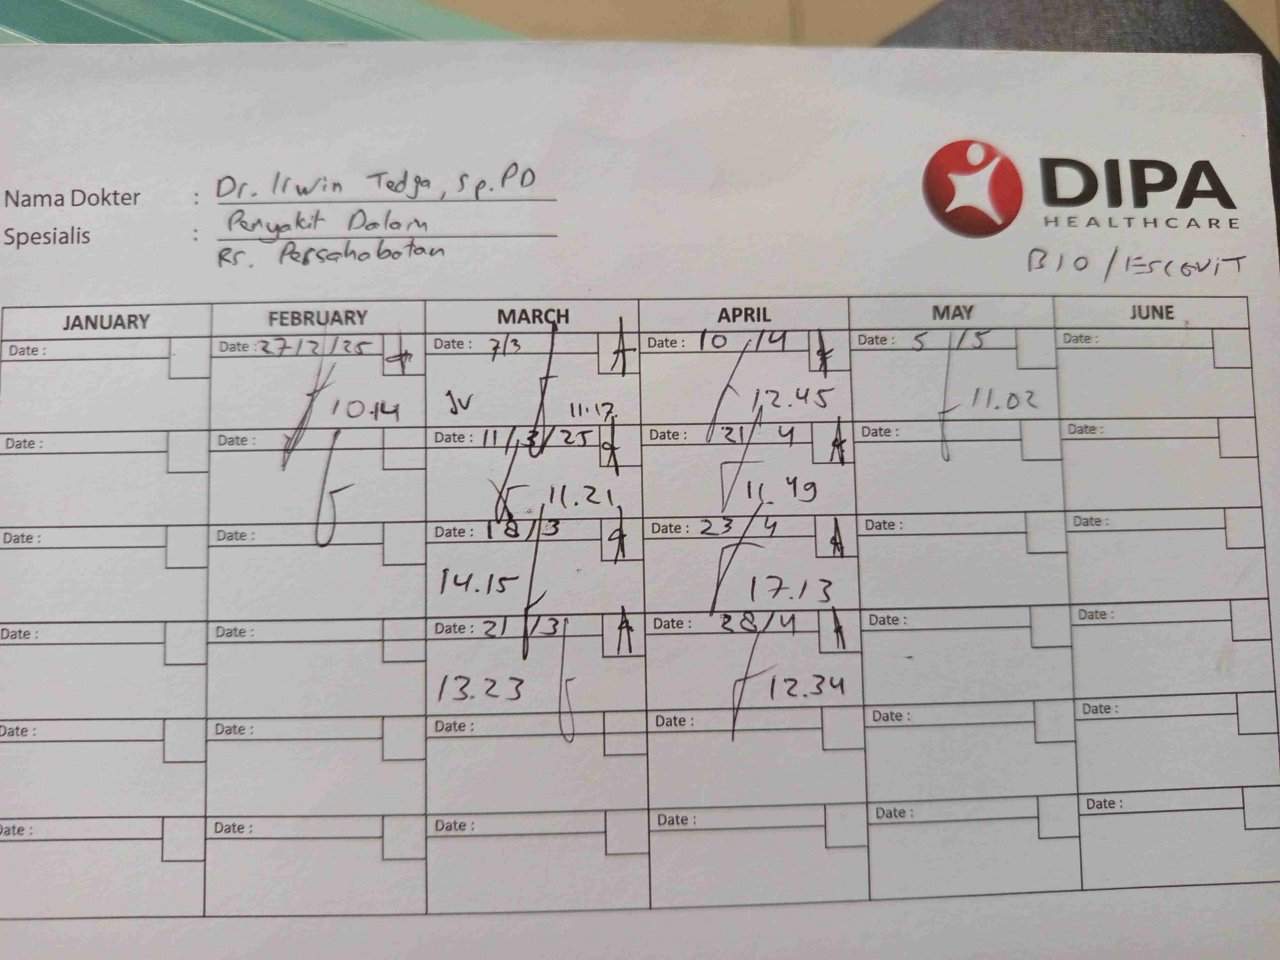 Nama Dokter : Dr. Irwin Tedja, Sp.PD
Spesialis : Penyakit Dalam
Rs. Persahabatan
DIPA
HEALTHCARE
B10 / ESCOVIT
JANUARY FEBRUARY MARCH APRIL MAY JUNE
Date : Date : 27/2/25 Date : 7/3 A Date : 10/4 Date : 5/5 Date :
10.14 JV 11.17 12.45 11.02
Date : Date : Date : 11/3/25 Date : 21 4 A Date : Date :
11.21 11.49
Date : Date : Date : 18/3 Date : 23/4 A Date : Date :
14.15 17.13
Date : Date : Date : 21/3 A Date : 28/4 A Date : Date :
13.23 12.34
Date : Date : Date : Date : Date : Date :
Date : Date : Date : Date : Date : Date :